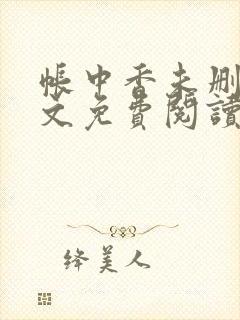 帳中香未删
文免費閱讀
绛美人